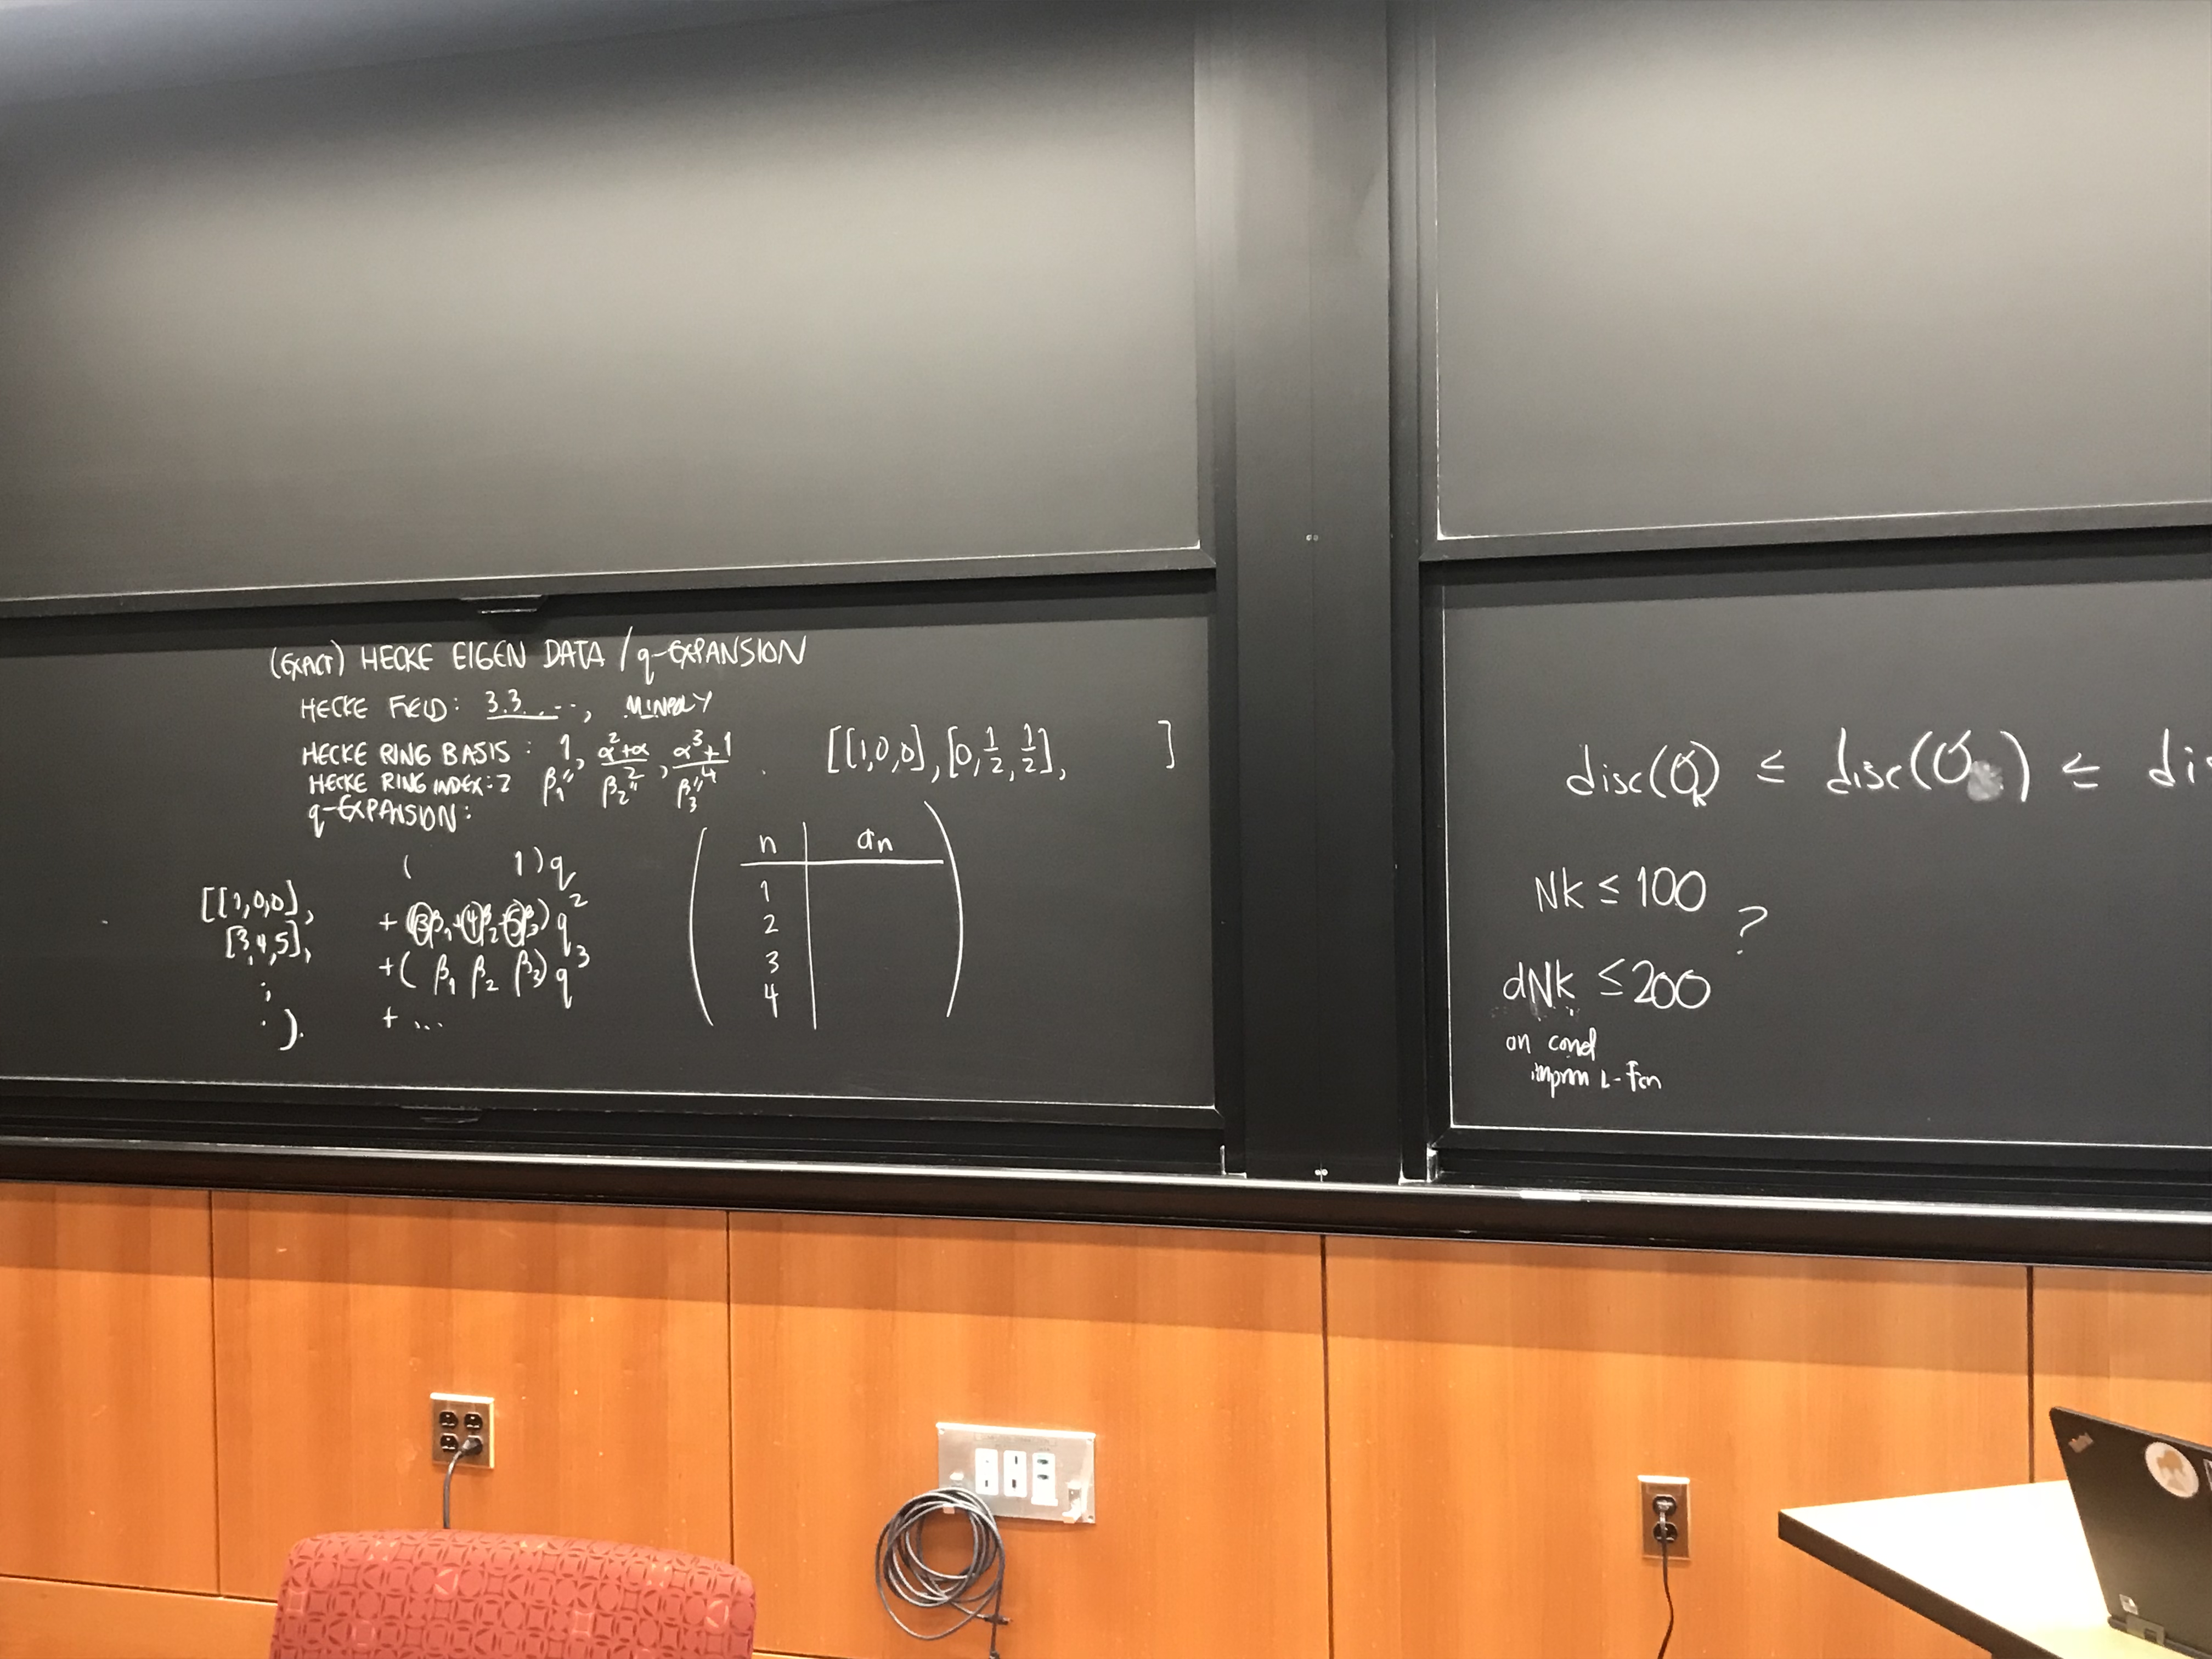 (EXACT) HECKE EIGEN DATA / q-EXPANSION
HECKE FIELD: 3.3. ..., MINPOLY
HECKE RING BASIS: 1, (α²+α)/2, (α³+1)/4 . [[1,0,0],[0,1/2,1/2], ]
HECKE RING INDEX: 2 β₁" β₂" β₃"
q-EXPANSION:
( 1)q
[[1,0,0], + (3β₁+4β₂+5β₃)q²
[3,4,5], +( β₁ β₂ β₃)q³
+ ...
n | aₙ
1
2
3
4
disc(O) ≤ disc(O ) ≤ di
Nk ≤ 100
?
dNk ≤ 200
on cond
L-fcn